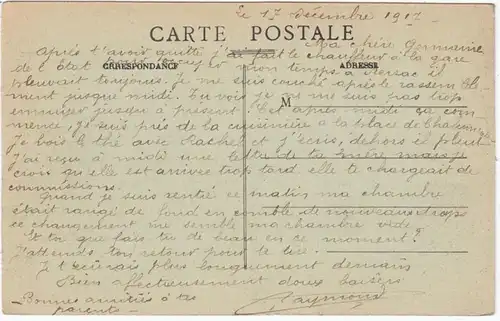 le 17 Décembre 1917
CARTE POSTALE
Ma chère Germaine
Après t'avoir quitté j'ai fait le chauffeur à la gare
de l'Etat
CORRESPONDANCE
ADRESSE
temps à
il
pleuvait toujours, je me suis couché après rassemble-
ment jusque midi. Tu vois je ne me suis pas trop
M
ennuyer jusqu'à présent. Cet après midi ça com-
mence, je suis près de la cuisinière à la place de
je bois le thé avec Rachel et j'écris, dehors il pleut
J'ai reçu à midi une lettre de ta mère mais je
crois qu'elle est arrivée trop tard elle te chargeait de
commissions.
Quand je suis rentré ce matin ma chambre
était rangé de fond en comble de nouveaux draps
ce changement me semble ma chambre vide
Et toi que fais tu de beau en ce moment?
J'attends ton retour pour te lire.
Je t'écrirais plus longuement demain
Bien affectueusement doux baisers
Bonnes amitiés à tes
parents
Raymond